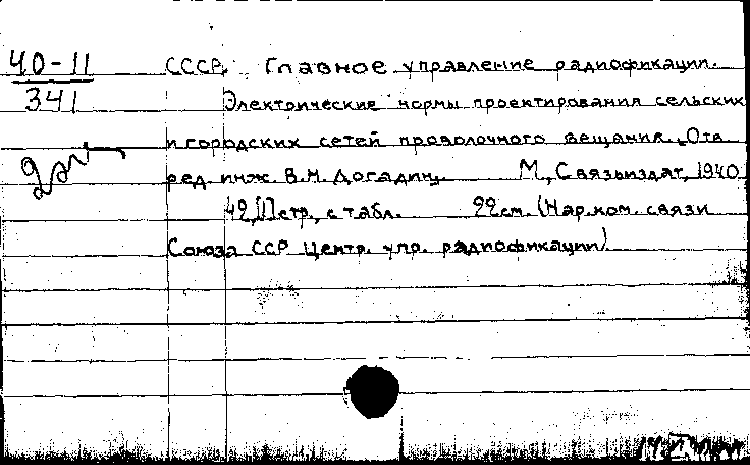 40-11
341
СССР. Главное управление радиофикации.
Электрические нормы проектирования сельских
и городских сетей проволочного вещания. Отв.
ред. инж. В.Н. Догадин. М., Связьиздат, 1940
42, стр., с табл. 22 см. (Нар. ком. связи
Союза ССР Центр. упр. радиофикации)